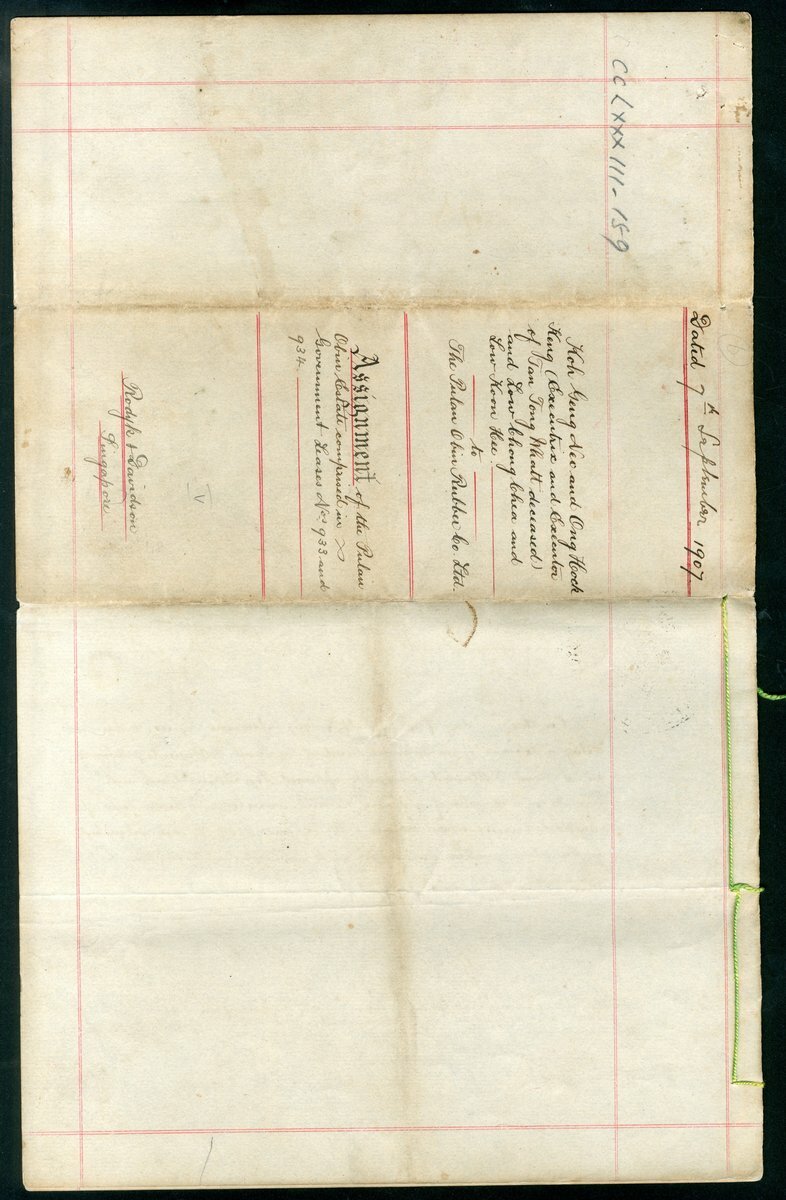 CCLXXXIII-159
Dated 7th September 1907
Koh Geng Neo and Ong Hock
Keng (Executrix and Executor
of Tan Tong Whatt deceased)
and Low Chong Chea and
Low Koon Hee
to
The Pulau Obin Rubber Co. Ltd.
Assignment of the Pulau
Obin Estate comprised in
Government Leases Nos. 933 and
934.
IV
Rodyk & Davidson
Singapore